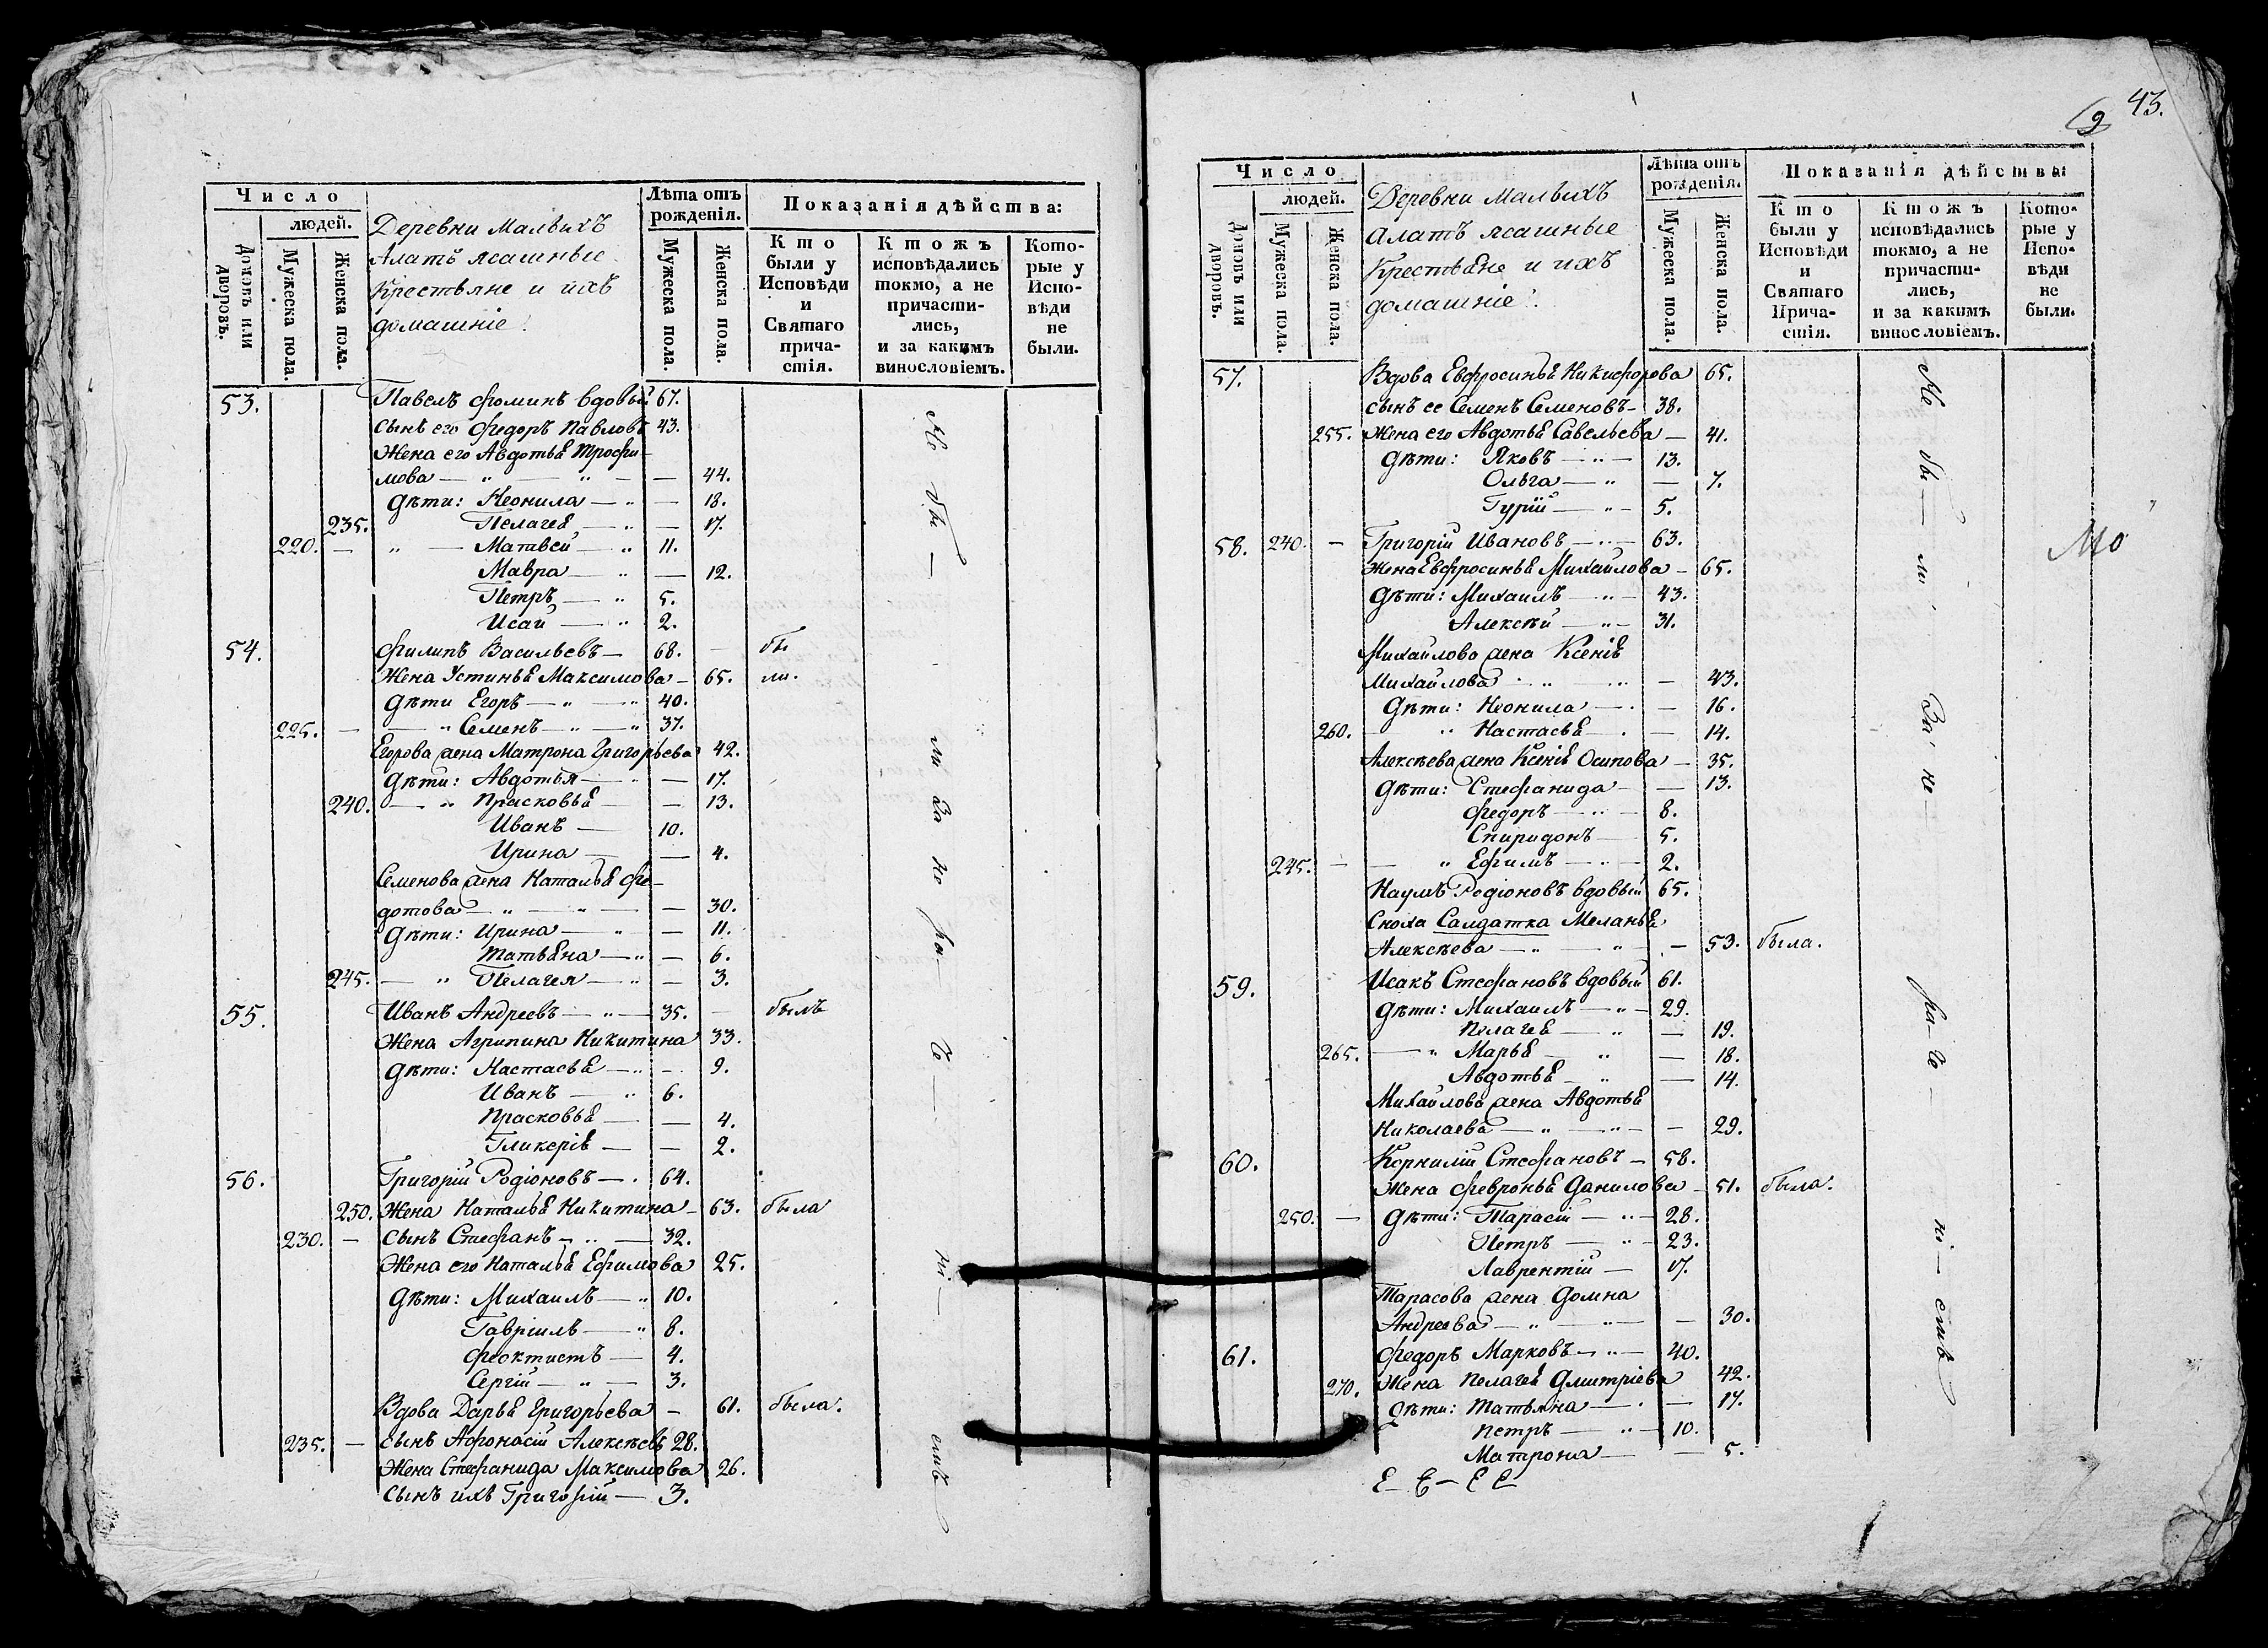 Число
людей.
Домовъ или дворовъ.
Мужеска пола.
Женска пола.
Деревни Малыхъ
Алатъ ясашные
Крестьяне и ихъ
домашніе.
Лѣта отъ рожденія.
Мужеска пола.
Женска пола.
Показанія дѣйства:
Кто были у Исповѣди и Святаго причастія.
Ктожъ исповѣдались токмо, а не причастились, и за какимъ винословіемъ.
Которые у Исповѣди не были.
53. Павелъ Фоминъ вдовый 67.
сынъ его Федоръ Павловъ 43.
Жена его Авдотья Трофи-
мова — „ — „ — — 44.
Дѣти: Неонила — „ — 18.
235. Пелагея — „ — 17.
220. — „ — Матвей — „ 11.
Мавра — „ — 12.
Петръ — „ 5.
Исаи — „ 2.
54. Филипъ Васильевъ — 68. — бы
Жена Устинья Максимова — 65. ли.
Дѣти Егоръ — „ — „ 40.
225. — — „ Семенъ — „ — „ 37.
Егорова жена Матрона Григорьева 42.
Дѣти: Авдотья — „ — 17.
240. — „ Прасковья — — 13.
Иванъ — 10.
Ирина — — 4.
Семенова жена Наталья Фе-
дотова — „ — „ — — 30.
Дѣти: Ирина — „ — 11.
Татьяна — „ — 6.
245. — „ Пелагея — „ — 3.
55. Иванъ Андреевъ — „ — 35. — былъ
Жена Агрипина Никитина 33.
Дѣти: Настасья — „ — 9.
Иванъ — „ 6.
Прасковья — — 4.
Гликерія — — 2.
56. Григорій Родіоновъ — . 64.
250. Жена Наталья Никитина — 63. была
230. — сынъ Стефанъ — „ — 32.
Жена его Наталья Ефимова 25.
Дѣти: Михаилъ — „ 10.
Гавріилъ — „ 8.
Феоктистъ — 4.
Сергій — „ — 3.
Вдова Дарья Григорьева — 61. была.
235. — сынъ Афонасій Алексѣевъ 28.
Жена Стефанида Максимова 26.
сынъ ихъ Григорій — 3.
Не бы — ли за не ра че — ні — емъ
43.
9
Число
людей.
Домовъ или дворовъ.
Мужеска пола.
Женска пола.
Деревни Малыхъ
Алатъ ясашные
Крестьяне и ихъ
домашніе.
Лѣта отъ рожденія.
Мужеска пола.
Женска пола.
Показанія дѣйства
Кто были у Исповѣди и Святаго Причастія.
Ктожъ исповѣдались токмо, а не причастились, и за какимъ винословіемъ.
Которые у Исповѣди не были.
57. Вдова Евфросинья Никифорова 65.
сынъ ее Семенъ Семеновъ — 38.
255. Жена его Авдотья Савельева — 41.
Дѣти: Яковъ — „ — 13.
Ольга — „ — 7.
Гурій — „ — 5.
58. 240. — Григорій Ивановъ — „ — 63.
Жена Евфросинья Михайлова — 65.
Дѣти: Михаилъ — „ — 43.
Алексѣй — „ — 31.
Михайлова жена Ксенія
Михайлова „ „ — 43.
Дѣти: Неонила — . — 16.
260. — „ Настасья — . — 14.
Алексѣева жена Ксенія Осипова — 35.
Дѣти: Стефанида — — 13.
Федоръ — „ — 8.
Спиридонъ — 5.
245. — — „ Ефимъ — „ — 2.
Наумъ Родіоновъ вдовый 65.
Сноха Салдатка Меланья
Алексѣева — „ — „ — — 53. была.
59. Исакъ Стефановъ вдовый 61.
Дѣти: Михаилъ — „ — 29.
Пелагея — „ — 19.
265. — „ Марья — „ — 18.
Авдотья — „ — 14.
Михайлова жена Авдотья
Николаева — „ — „ — — 29.
60. Корнилій Стефановъ — 58.
Жена Февронья Данилова — 51. была.
250. — Дѣти: Тарасій — „ — 28.
Петръ — „ — 23.
Лаврентій — 17.
Тарасова жена Домна
Андреева — „ — „ — — 30.
61. Федоръ Марковъ — „ — 40.
270. Жена Пелагея Дмитріева 42.
Дѣти: Татьяна — . — 17.
Петръ — „ — 10.
Матрона — — 5.
Не бы — ли за не — ра — че — ні — емъ